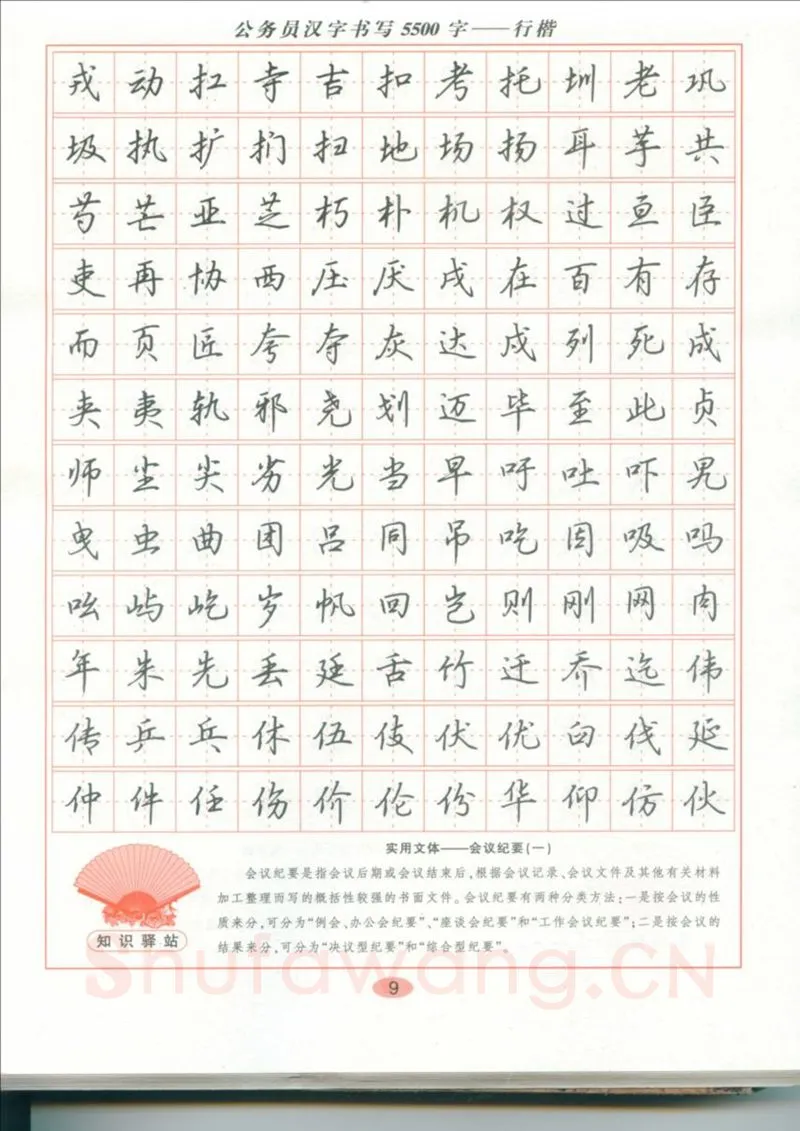 公务员汉字书写5500字——行楷
戎动扛寺吉扣考托圳老巩
圾执扩扪扫地场扬耳芋共
芍芒亚芝朽朴机权过亘臣
吏再协西压厌戌在百有存
而页匠夸夺灰达戍列死成
夹夷轨邪尧划迈毕至此贞
师尘尖劣光当早吁吐吓旯
曳虫曲团吕同吊吃因吸吗
吆屿屹岁帆回岂则刚网肉
年朱先丢廷舌竹迁乔迄伟
传乒乓休伍伎伏优臼伐延
仲件任伤价伦份华仰仿伙
实用文体——会议纪要(一)
会议纪要是指会议后期或会议结束后,根据会议记录、会议文件及其他有关材料
加工整理而写的概括性较强的书面文件。会议纪要有两种分类方法:一是按会议的性
质来分,可分为“例会、办公会纪要”、“座谈会纪要”和“工作会议纪要”;二是按会议的
结果来分,可分为“决议型纪要”和“综合型纪要”。
知识驿站
Shufawang.CN
9